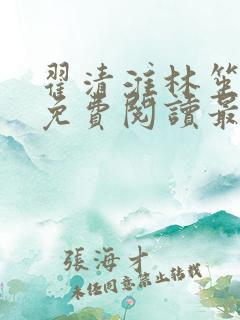 翟清淮林笙
免費閱讀最
張海才
未经同意禁止转载